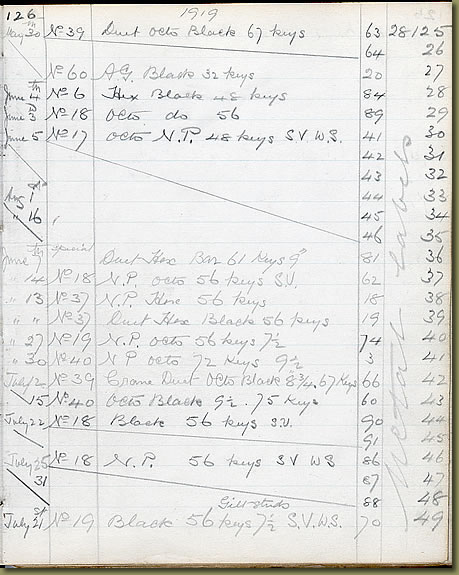 126 1919
May 30th No 39 Duet Octo Black 67 keys 63 28125
64 26
No 60 A.G. Black 32 keys 20 27
June 4th No 6 Hex Black 48 keys 84 28
June 3 No 18 Octo do 56 89 29
June 5 No 17 Octo N.P. 48 keys S.V. W.S. 41 30
42 31
43 32
Aug 1st 44 33
" 16 45 34
46 35
June 7th special Duet Hex Bar 61 Keys 9" 81 36
" 14 No 18 N.P. Octo 56 keys S.V. 62 37
" 13 No 37 N.P. Hexe 56 keys 18 38
" " No 37 Duet Hex Black 56 keys 19 39
" 27 No 19 N.P. Octo 56 keys 7½ 74 40
" 30 No 40 N P Octo 72 Keys 9½ 3 41
July 12 No 39 Crane Duet Octo Black 8¾. 67 Keys 66 42
" 15 No 40 Octo Black 9½. 75 Keys 60 43
July 22 No 18 Black 56 keys S.V. 90 44
91 45
July 25 No 18 N.P. 56 keys S V W S 86 46
31 87 47
Gilt studs 88 48
July 21st No 19 Black 56 keys 7½ S.V. W.S. 70 49
Metal Labels